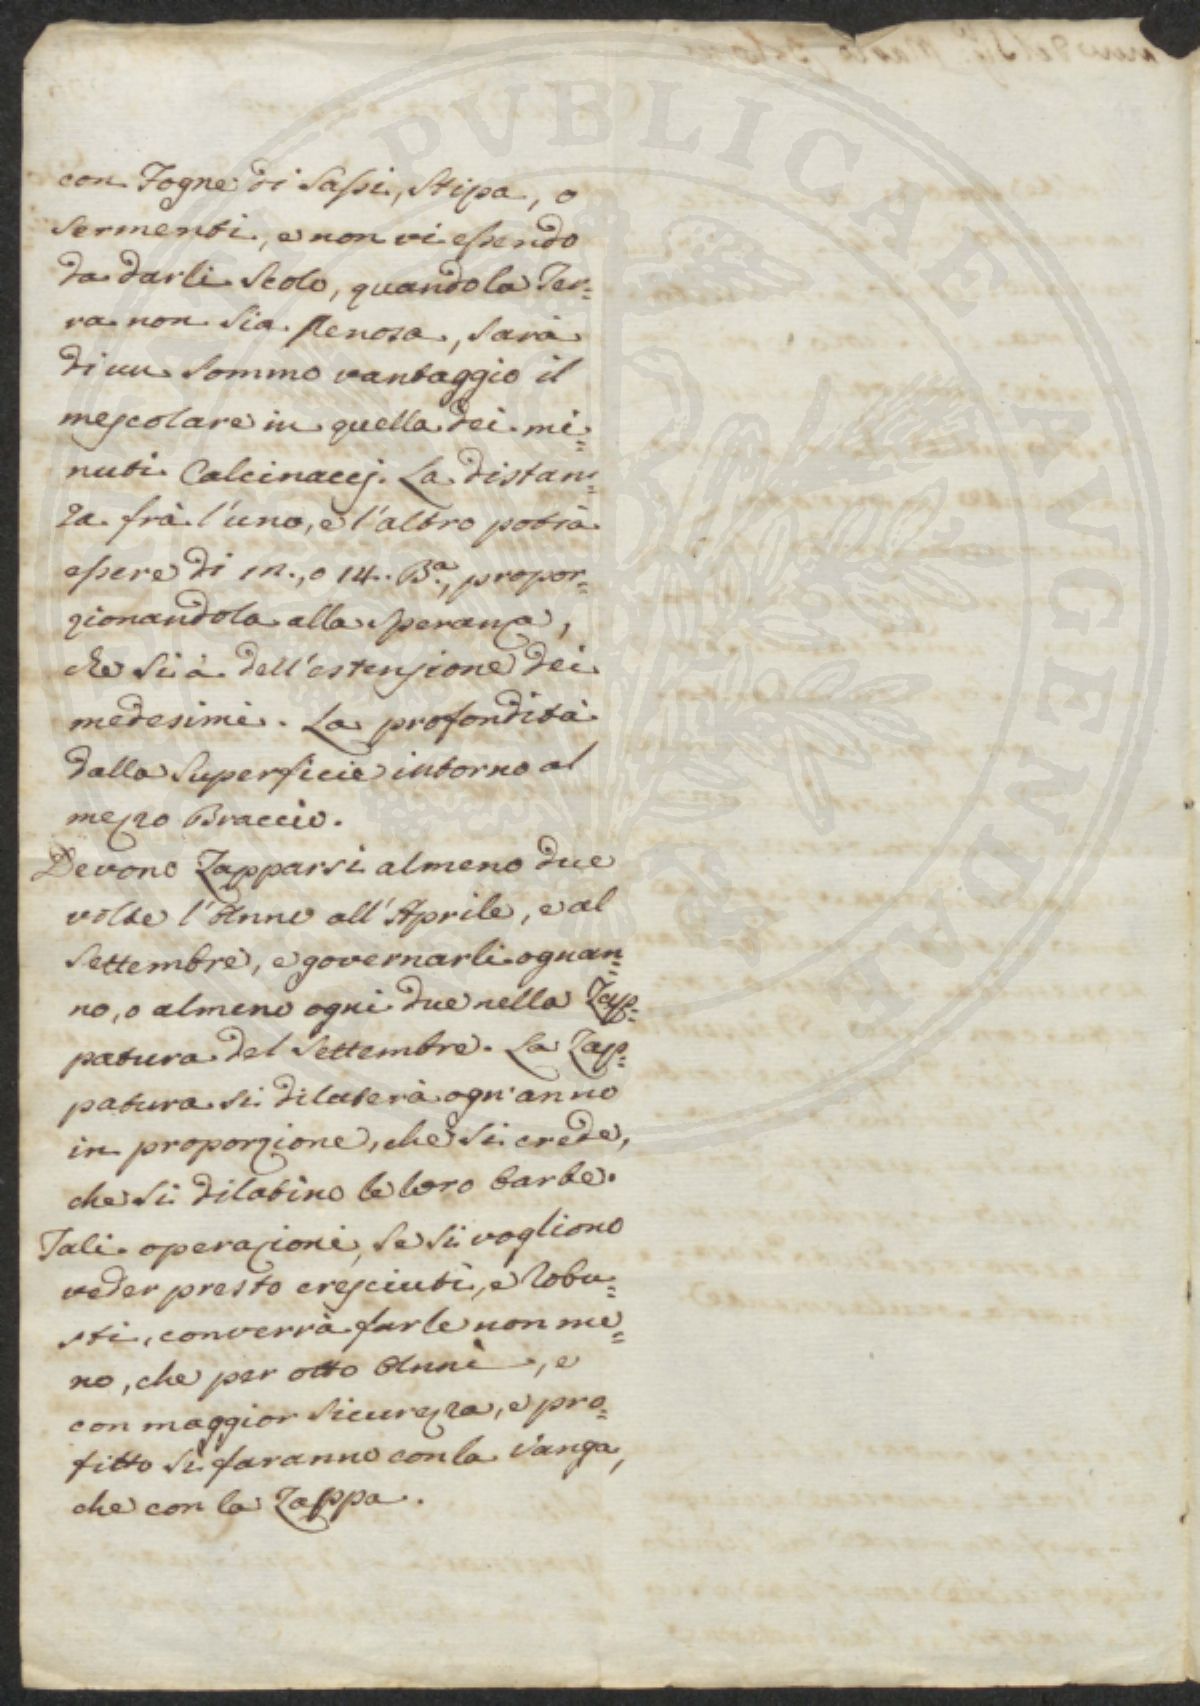 con Fogne di Sassi, Stipa, o
Sermenti, e non vi essendo
da darli Scolo, quando la Ter=
ra non Sia Renosa, Sarà
di un Sommo vantaggio il
mescolare in quella dei mi=
nuti Calcinaccj. La distan=
za frà l'uno, e l'altro potrà
essere di 12., o 14. B.ª, propor=
zionandola alla Speranza,
che Si à dell'estensione dei
medesimi. La profondità
dalla Superficie intorno al
mezzo Braccio.
Devono Zapparsi almeno due
volte l'Anno all'Aprile, e al
Settembre, e governarli ognan=
no, o almeno ogni due nella Zap=
patura del Settembre. La Zap=
patura si dilaterà ogn'anno
in proporzione, che Si crede,
che Si dilatino le loro barbe.
Tali operazioni, se Si vogliono
veder presto cresciuti, e Robu=
sti, converrà farle non me=
no, che per otto Anni, e
con maggior Sicurezza, e pro=
fitto Si faranno con la Vanga,
che con la Zappa.
PVBLICAE AVGENDAE